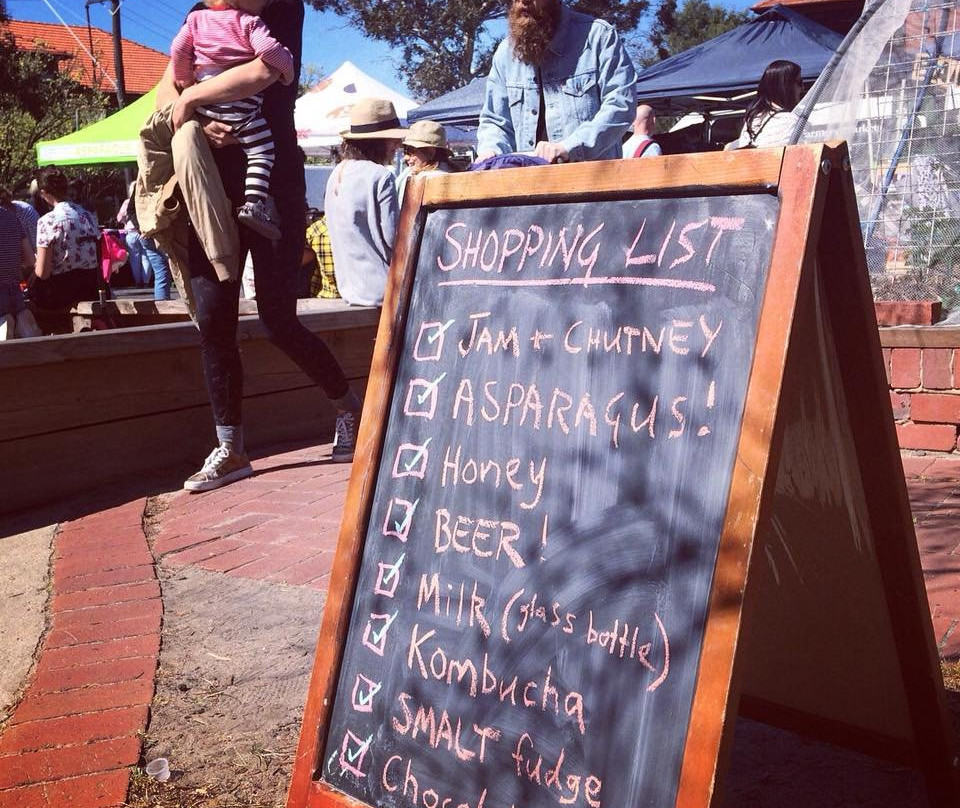 SHOPPING LIST
JAM + CHUTNEY
ASPARAGUS!
Honey
BEER!
Milk (glass bottle)
Kombucha
SMALT fudge